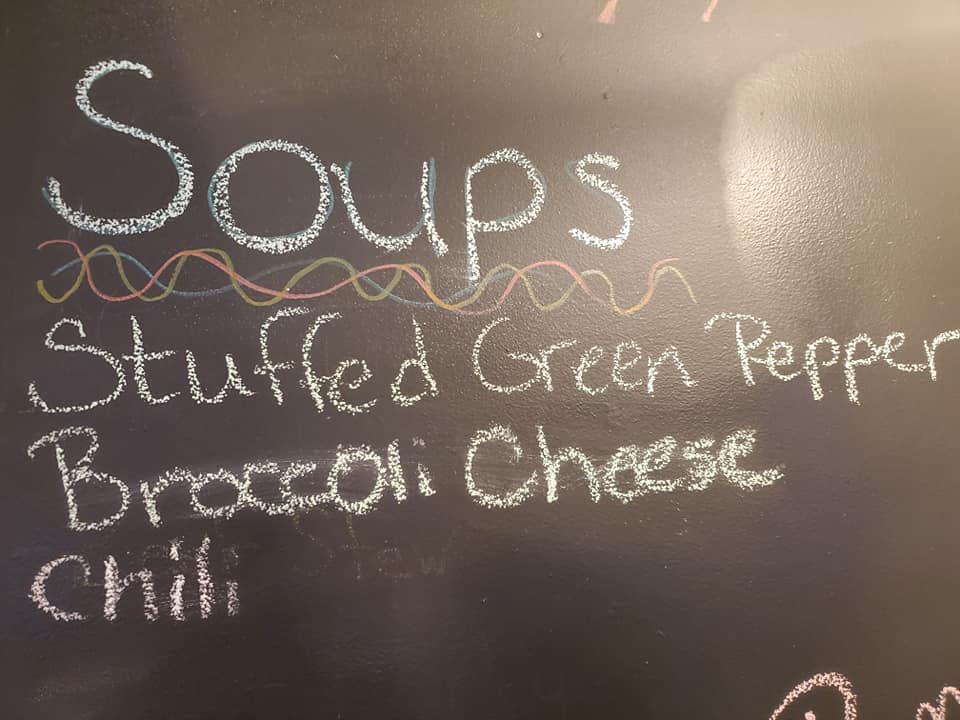 Soups
Stuffed Green Pepper
Broccoli Cheese
Chili
Stew